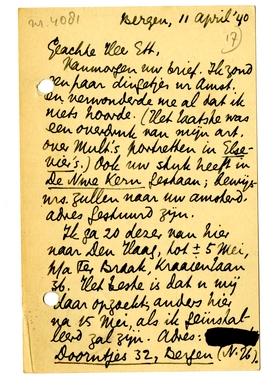 nr. 4081
Bergen, 11 April '40
17
Geachte Heer Ett,
Vanmorgen uw brief. Ik zond
een paar dingetjes nr Amst.
en verwonderde me al dat ik
niets hoorde. (Het laatste was
een overdruk van mijn art.
over Mult's portretten in Else-
vier's.) Ook uw stuk heeft in
De Nwe Kern gestaan; bewijs-
nrs. zullen naar uw amsterd.
adres gestuurd zijn.
Ik ga 20 dezer van hier
naar Den Haag, tot ± 5 Mei,
p/a Ter Braak, Kraaienlaan
36. Het beste is dat u mij
daar opzoekt; anders hier
na 15 Mei, als ik geïnstal-
leerd zal zijn. Adres:
Doorntjes 32, Bergen (N.H.).